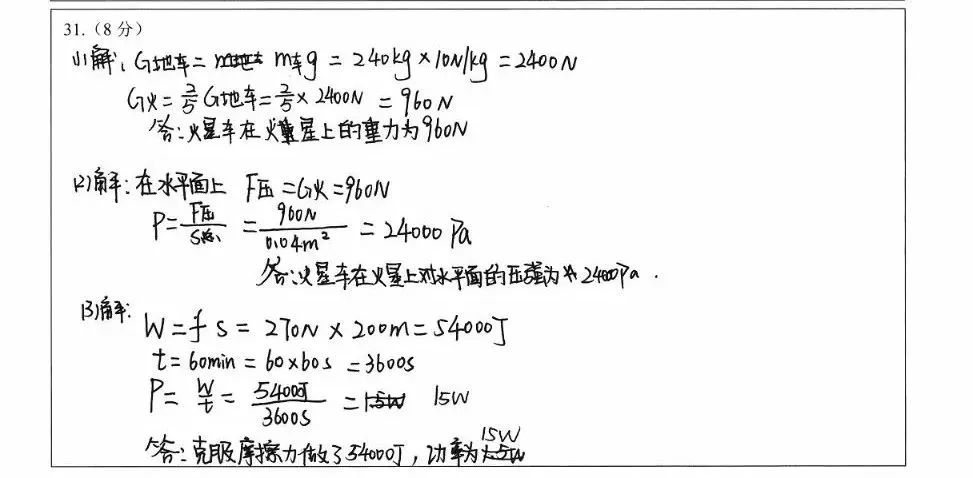 31.（8分）
(1)解：G地车 = m车g = 240kg × 10N/kg = 2400N
G火 = 2/5 G地车 = 2/5 × 2400N = 960N
答：火星车在火星上的重力为960N
(2)解：在水平面上 F压 = G火 = 960N
P = F压/S总 = 960N/0.04m² = 24000 Pa
答：火星车在火星上对水平面的压强为 24000Pa.
(3)解：
W = f s = 270N × 200m = 54000J
t = 60min = 60×60s = 3600s
P = W/t = 54000J/3600s = 15W
答：克服摩擦力做了54000J，功率为15W